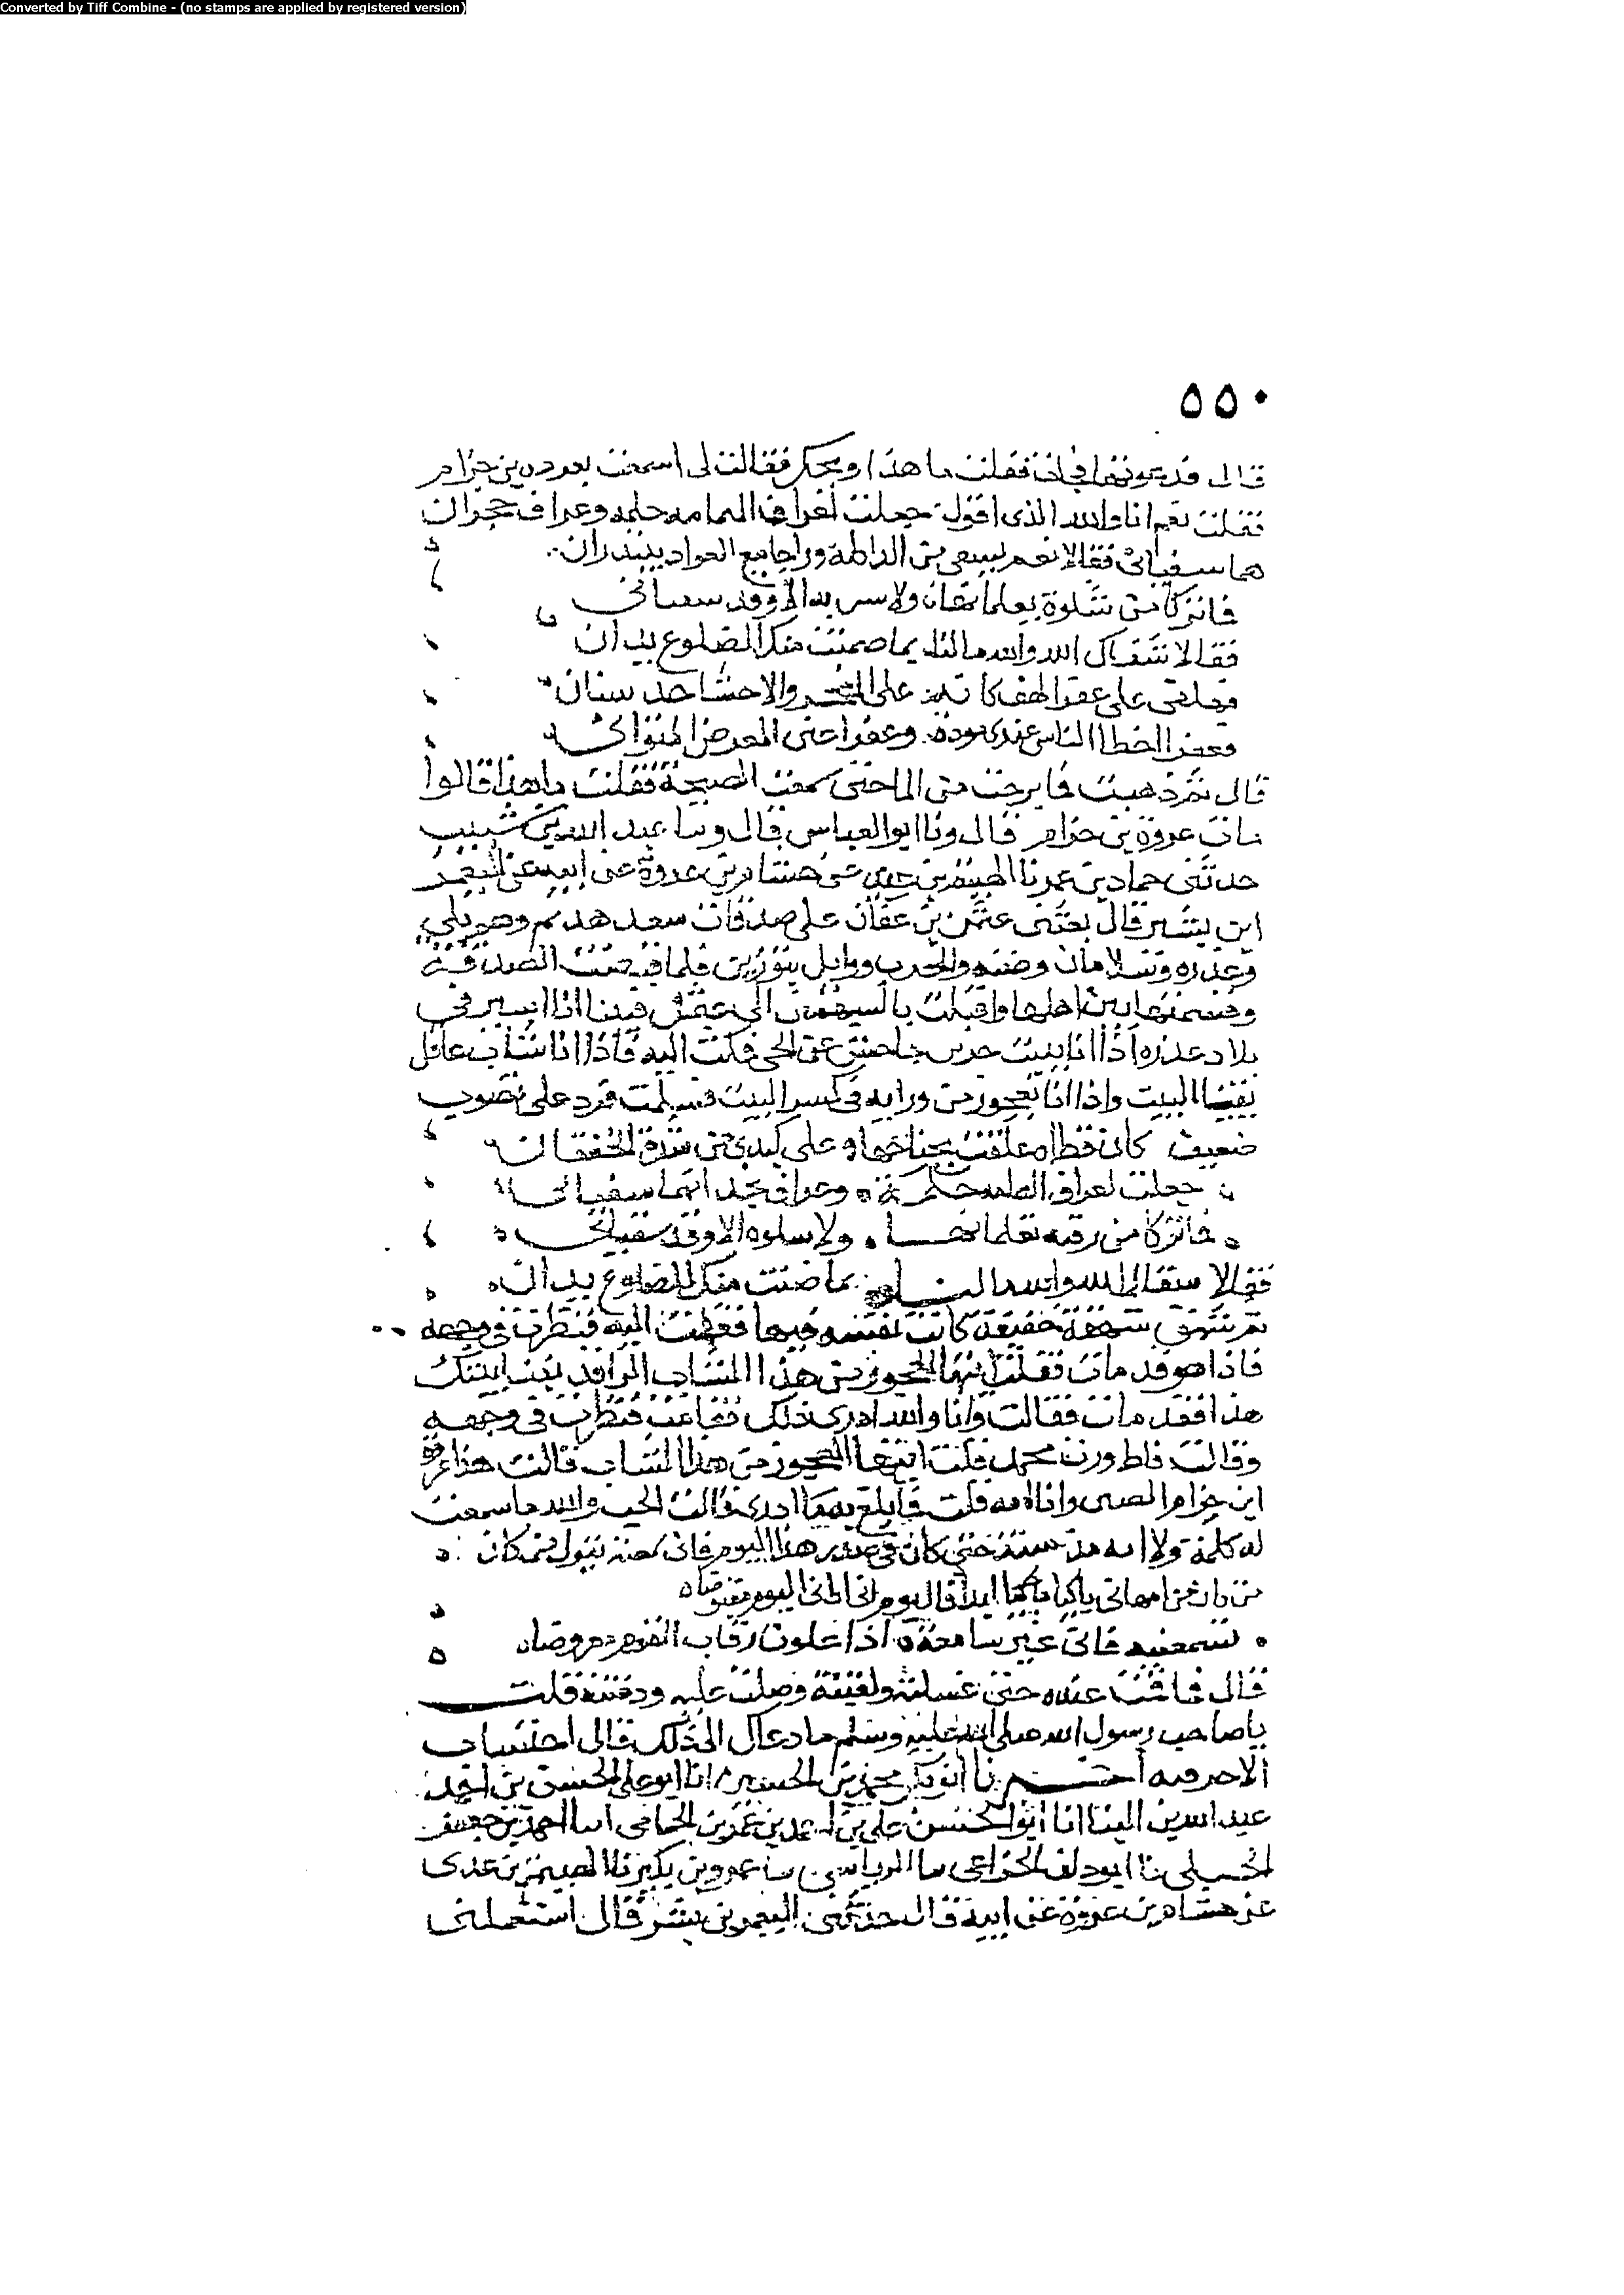 Converted by Tiff Combine - (no stamps are applied by registered version)
٥٥٠
قال فقلت ما هذا ويحك فقالت لي اسمعت بعروة بن حزام
فقلت نعم انا والله الذي اقول جعلت لعراف اليمامه حكمه وعراف حجران
هما سفياني فقالا نعم
فاتركا من سلوة يعلمانها ولا الا وقد سقياني
فقالا شفاك الله والله مالنا بما ضمنت منك الضلوع يدان
على عفرا لهف كانه على النحر والاحشا حد سنان
فعفرا احظا الناس عندي مودة وعفرا عني المعرض المتواني
قال ثم ذهبت فما برحت من الما حتى سمعت الصيحة فقلت ما هذا قالوا
مات عروة بن حزام قال ونا ابو العباس قال ونا عبد الله بن شبيب
حدثني حماد بن عمر نا الهيثم بن عدي عن هشام بن عروة عن ابيه عن النعمن
ابن بشير قال بعثني عثمن بن عفان على صدقات سعد هديم وهم بلي
وعذره وسلامان وضنه والحرب ووايل بنو زيد فلما قبضت الصدقة
وقسمتها بين اهلها واقبلت بالسهمين الى عثمن فبينا انا اسير في
بلاد عذره اذا انا ببيت حريد جاحش عن الحي فملت اليه فاذا انا شاب نائم
بفنا البيت واذا انا بعجوز من ورايه في كسر البيت فسلمت فرد علي بصوت
ضعيف كان قطاه علقت بجناحها على كبدي من شدة الخفقان
جعلت لعراف اليمامه حكمه وعراف نجد انهما سفياني
فاتركا من رقيه يعلمانها ولا سلوه الا وقد سقياني
فقالا شفاك الله والله مالنا بما ضمنت منك الضلوع يدان
ثم شهق شهقة خفيفة كانت نفسه فيها فنظرت في وجهه
فاذا هو قد مات فقلت ايتها العجوز من هذا الشاب الراقد بفنا بيتك
هذا فقد مات فقالت وانا والله ادري ذلك فقامت فنظرت في وجهه
وقالت فاظ ورب محمد فقلت ايتها العجوز من هذا الشاب قالت هذا عروة
ابن حزام وانا امه قلت فما بلغ به ما ادري قالت الحب والله ما سمعت
له كلمة ولا انه منذ سنة حتى كان في صدر هذا اليوم فاني سمعته يقول من كان
من امهاتي باكيا ابدا فاليوم اني اراني اليوم مقبوضاه
تسمعنيه فاني غير سامعه اذا علوت رقاب القوم معروضاه
قال فاقمت عنده حتى غسلته وكفنته وصليت عليه ودفنته قلت
يا صاحب رسول الله صلى الله عليه وسلم ما دعاك الى ذلك قال احتساب
الاجر فيه اخبرنا ابو بكر محمد بن الحسين انا ابو علي الحسن بن احمد بن
عبد الله بن البنا انا ابو الحسن علي بن احمد بن عمر بن الحمامي انا احمد بن جعفر
الختلي نا ابو دلف الخزاعي نا الرياشي نا عمرو بن بكير نا الهيثم بن عدي
عن هشام بن عروة عن ابيه قال حدثني النعمن بن بشير قال استعملني